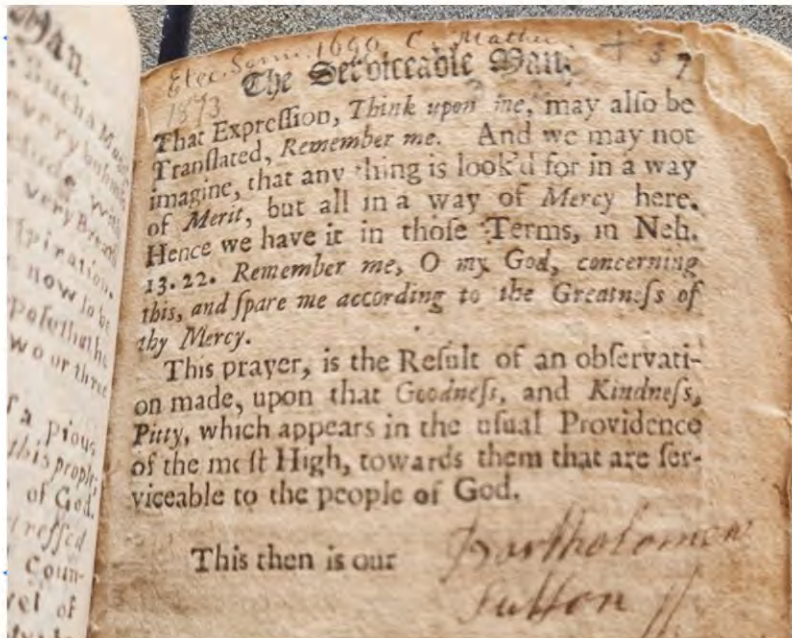 Man.
Such a
very
very Breath
spiration.
now to be
pose that he
two or three
a Pious
this people,
of God.
Coun-
vel of
Elec. Serm. 1690 C. Mather + 37
1873
The Serviceable Man.
That Expreſſion, Think upon me, may alſo be
Tranſlated, Remember me. And we may not
imagine, that any thing is look'd for in a way
of Merit, but all in a way of Mercy here.
Hence we have it in thoſe Terms, in Neh.
13.22. Remember me, O my God, concerning
this, and ſpare me according to the Greatneſs of
thy Mercy.
This prayer, is the Reſult of an obſervati-
on made, upon that Goodneſs, and Kindneſs,
Pitty, which appears in the uſual Providence
of the moſt High, towards them that are ſer-
viceable to the people of God.
This then is our
Bartholomew
Sutton